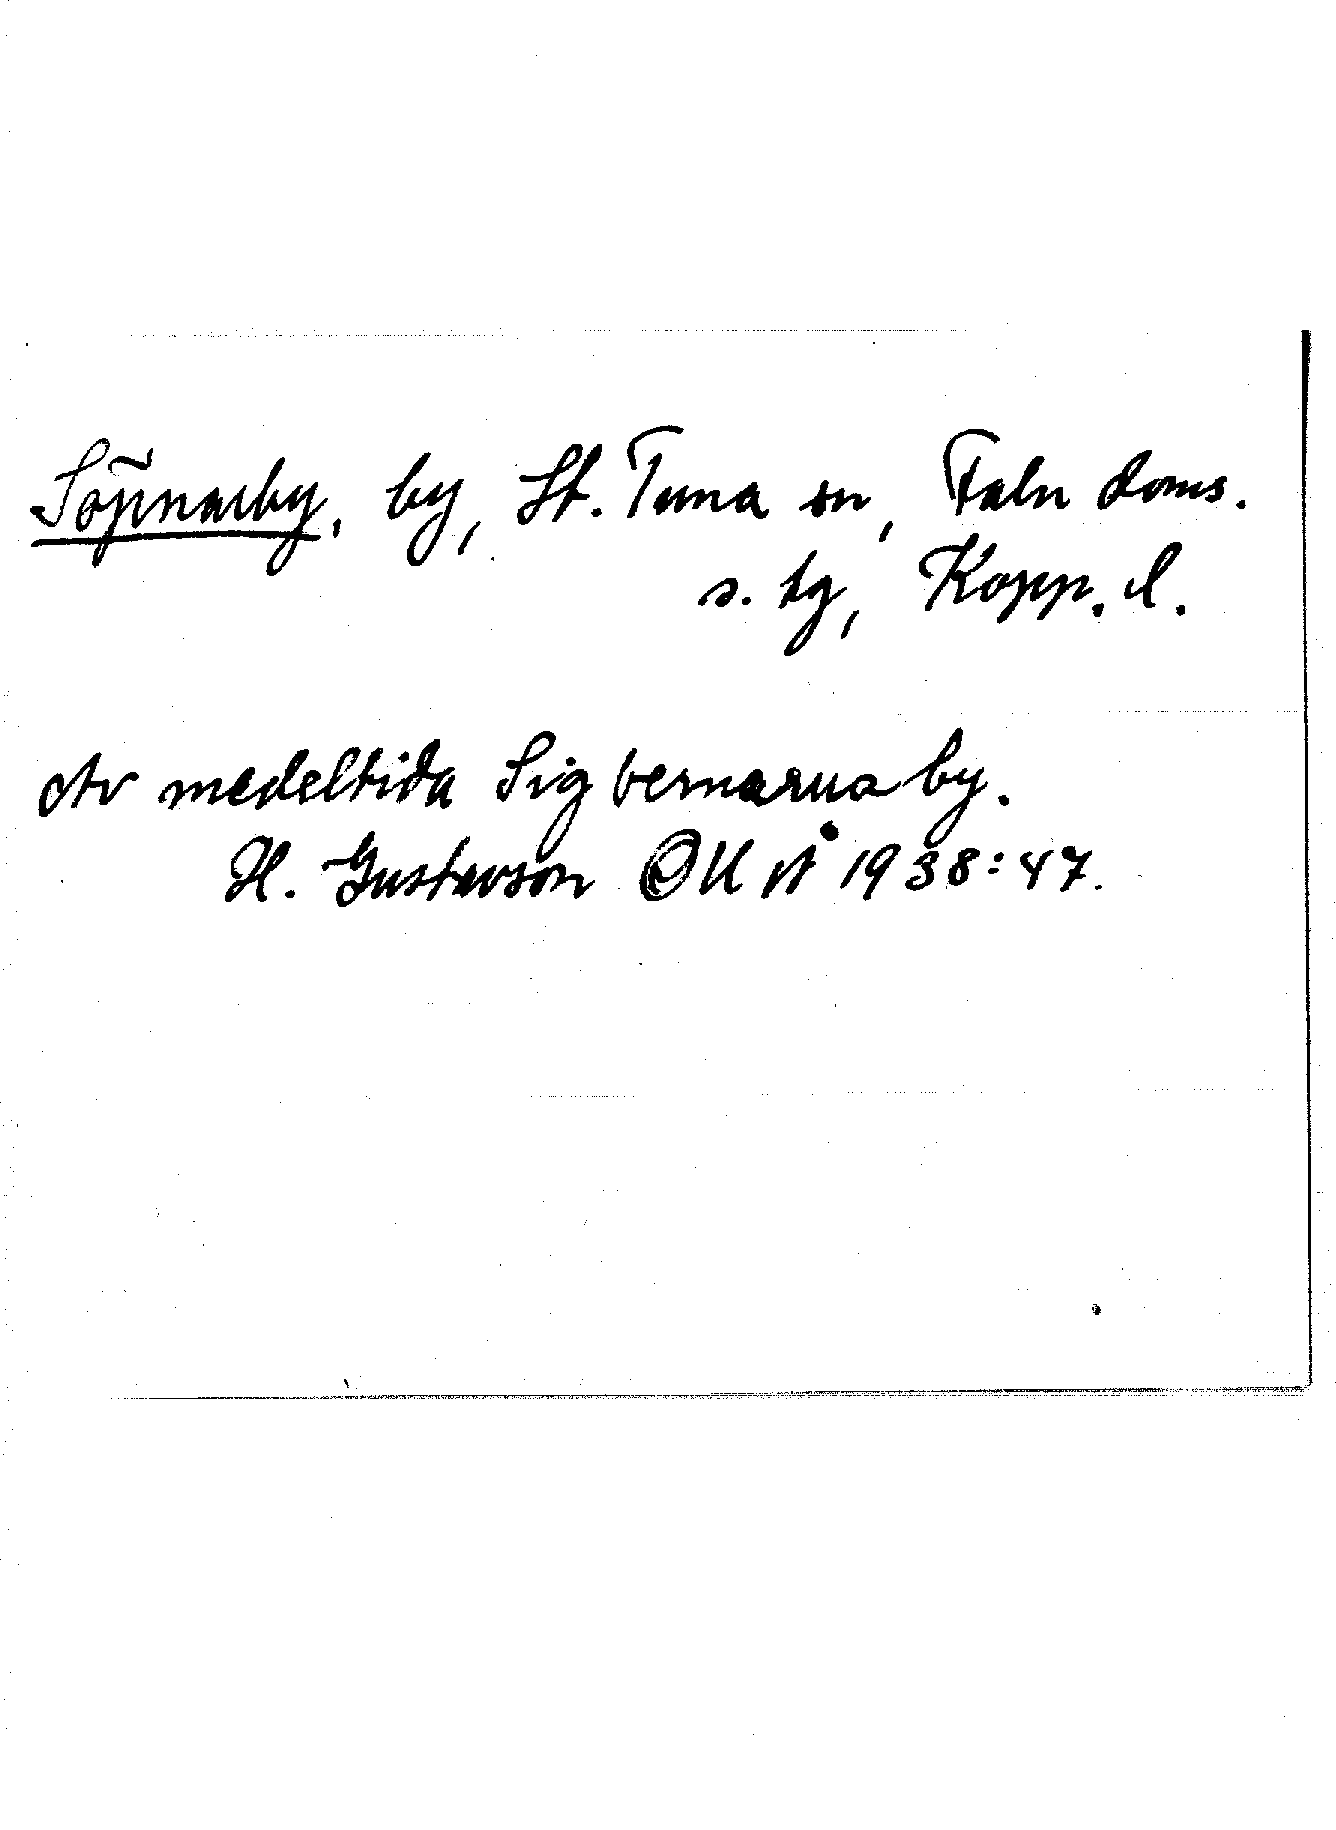 by, St. Tuna sn, Falu doms.
s. tg, Kopp. l.
Av medeltida Sigbernarna by.
H. Gustavson OUÅ 1938:47.